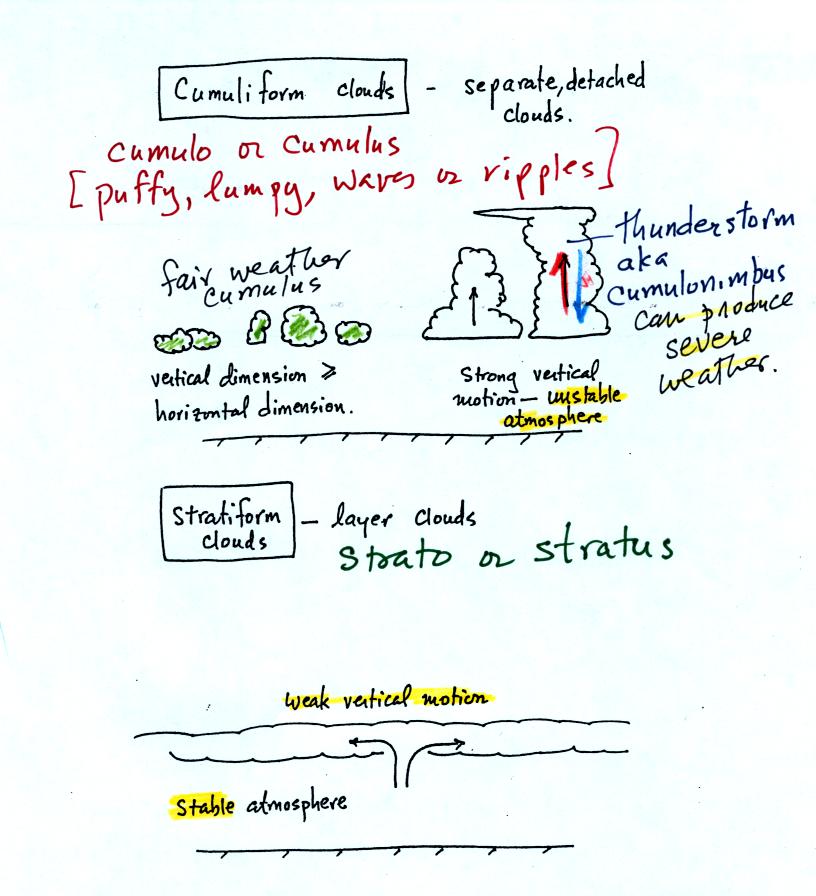 Cumuliform clouds - separate, detached
clouds.
cumulo or cumulus
[puffy, lumpy, waves or ripples]
fair weather
cumulus
vertical dimension ≥
horizontal dimension.
thunderstorm
aka
cumulonimbus
can produce
severe
weather.
Strong vertical
motion - unstable
atmosphere
Stratiform
clouds
- layer clouds
strato or stratus
weak vertical motion
Stable atmosphere